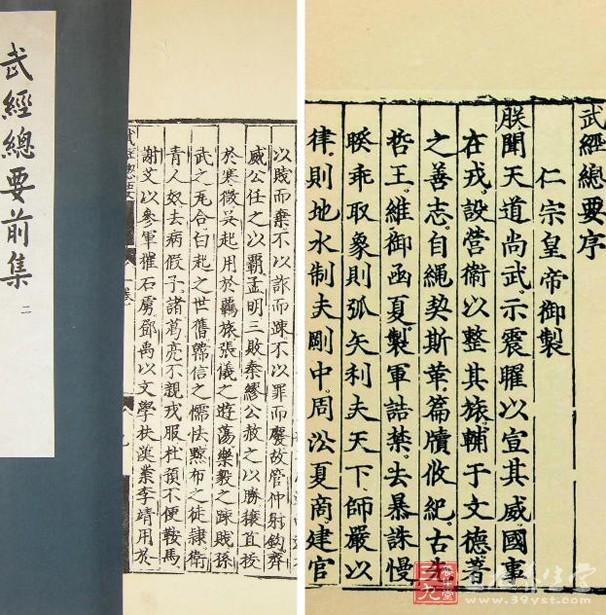 武經總要前集
二
以賤而棄不以詐而踈不以罪而廢故管仲射鉤齊
威公任之以霸孟明三敗秦繆公赦之以勝穰苴拔
於寒微吳起用於羈旅張儀之遊蕩樂毅之踈賤孫
武之瓦合白起之世舊韓信之懦怯黥布之徒隷衛
青人奴去病假子諸葛亮不親戎服杜預不便鞍馬
謝艾以參軍摧石虜鄧禹以文學扶漢業李靖用於
武經總要序
仁宗皇帝御製
朕聞天道尚武示震曜以宣其威國事
在戎設營衛以整其旅輔于文德著
之善志自繩契斯革篇牘攸紀古先
哲王維御函夏製軍誥禁去暴誅慢
睽乖取象則弧矢利夫天下師嚴以
律則地水制夫剛中周沿夏商建官
www.39yst.com